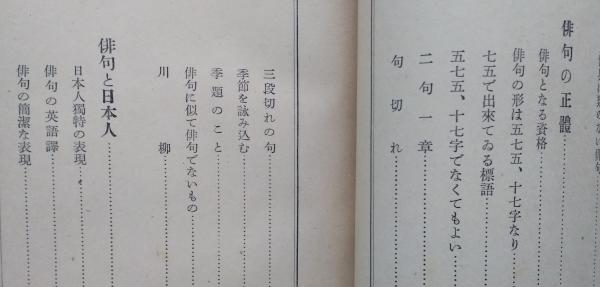 俳句の正體
俳句となる資格
俳句の形は五七五、十七字なり
七五で出來てゐる標語
五七五、十七字でなくてもよい
二句一章
句切れ
三段切れの句
季節を詠み込む
季題のこと
俳句に似て俳句でないもの
川柳
俳句と日本人
日本人獨特の表現
俳句の英語譯
俳句の簡潔な表現